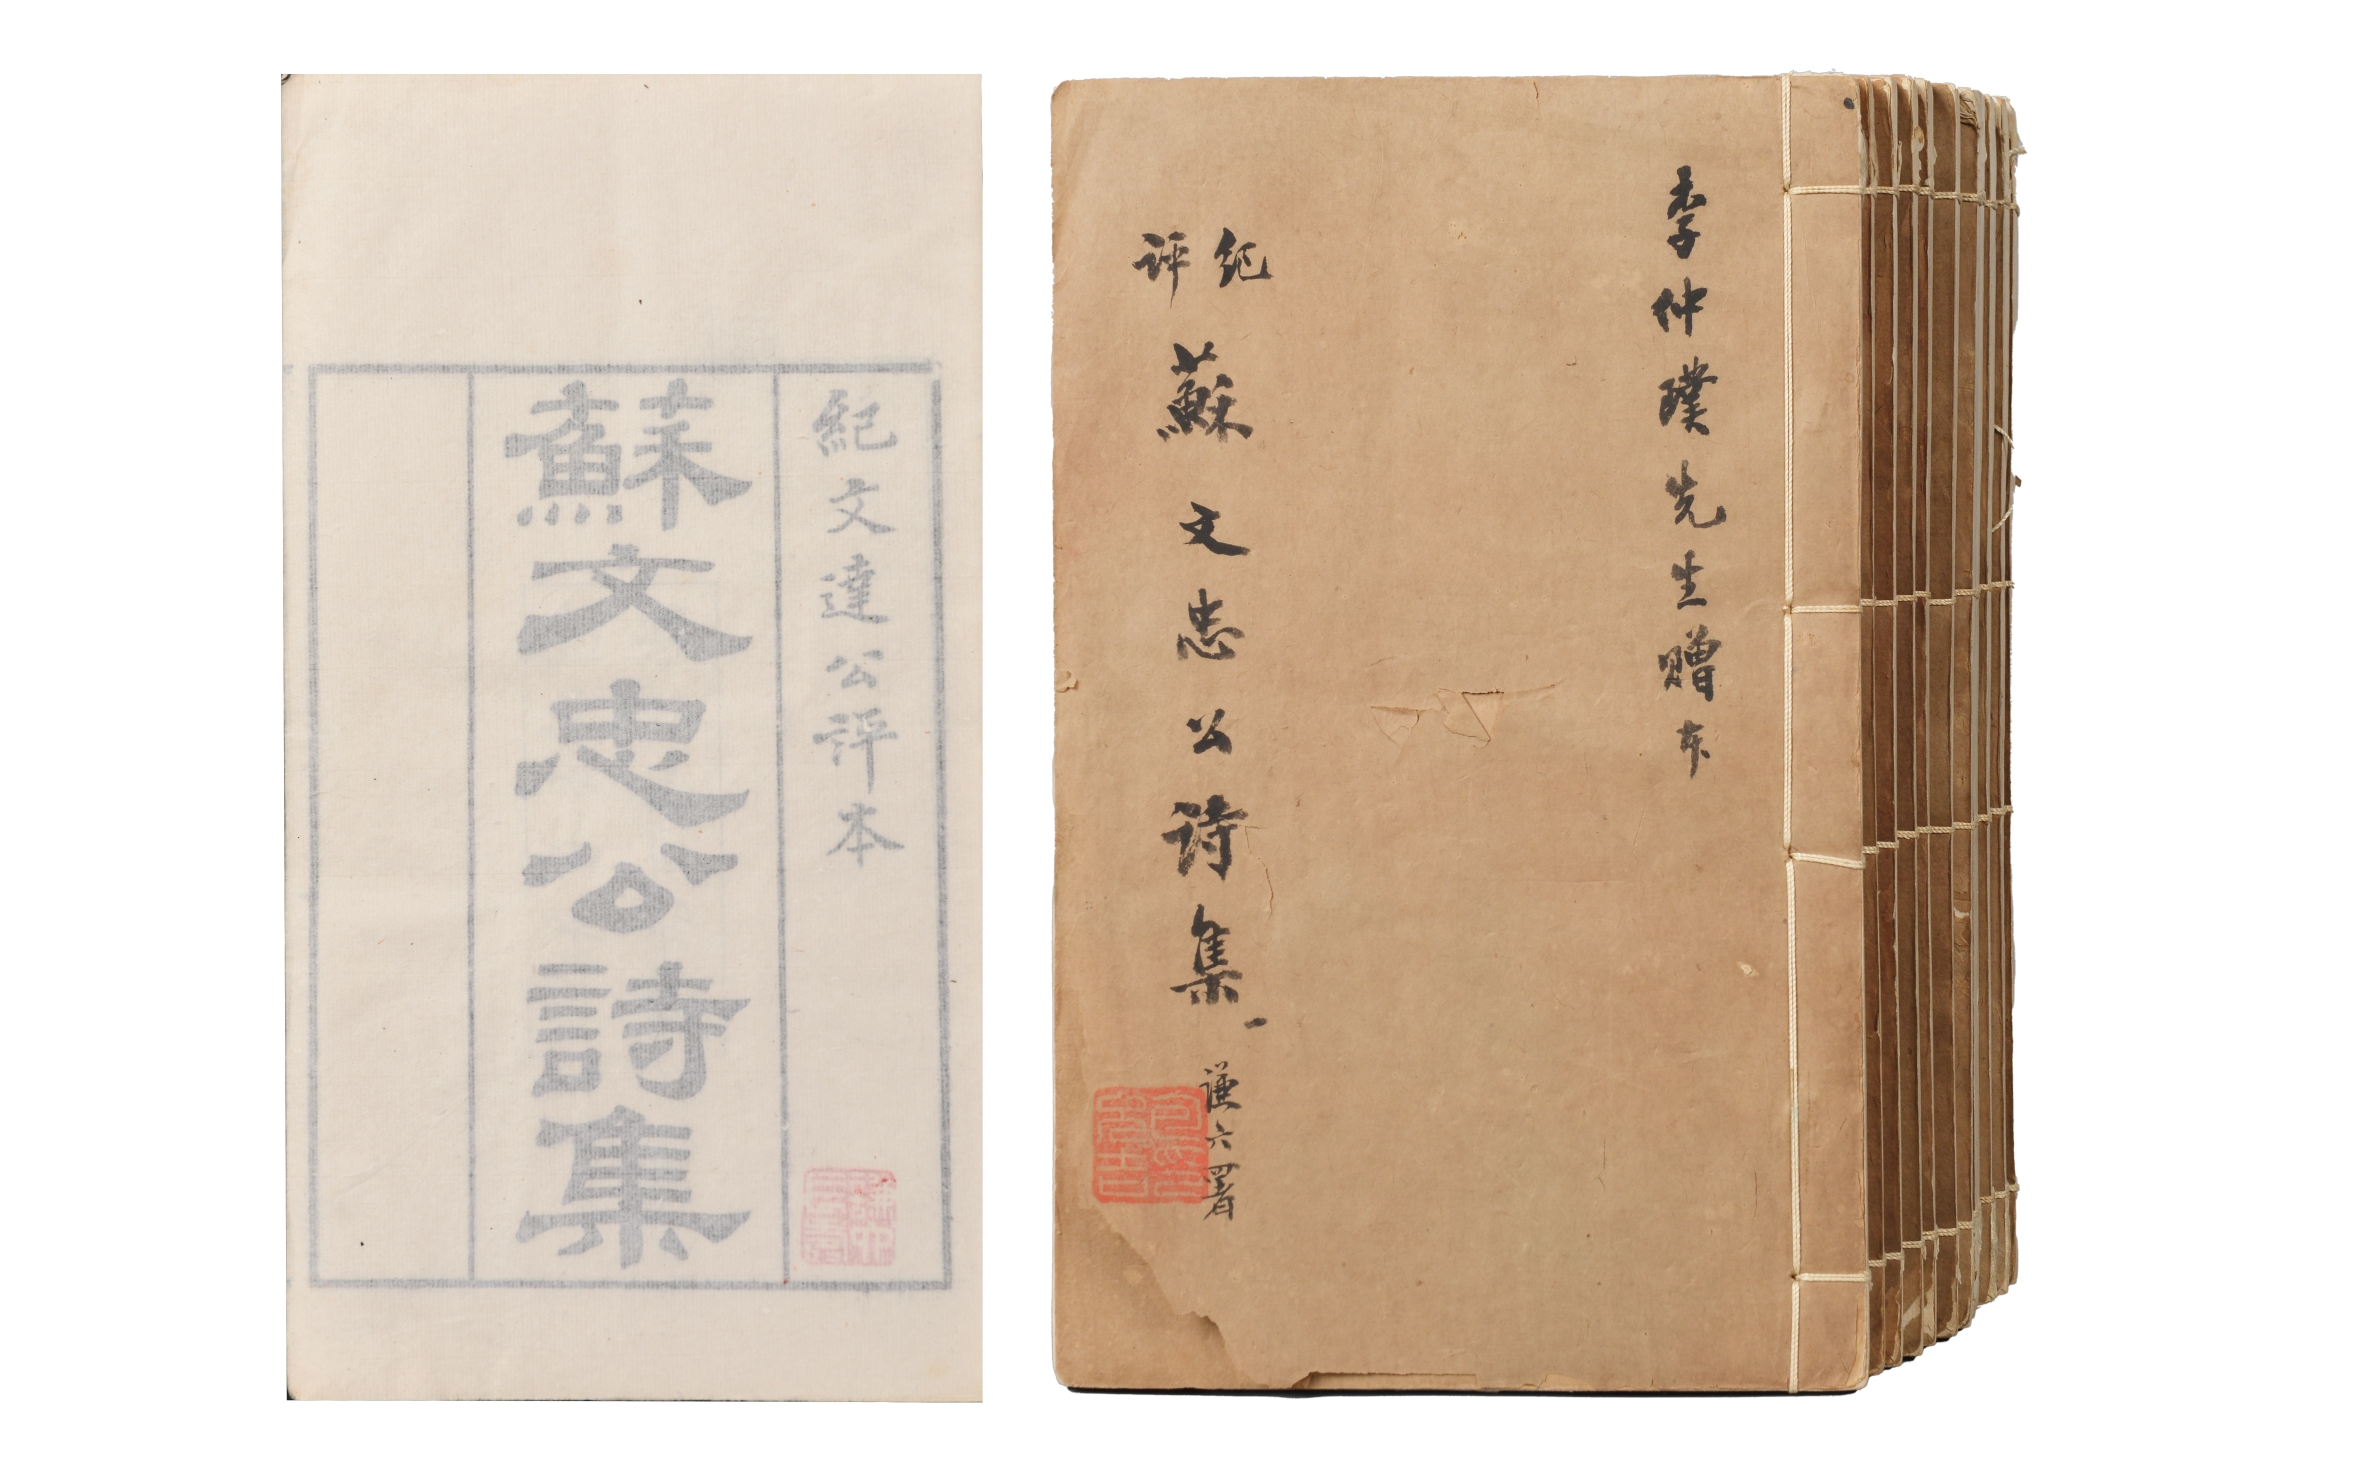 紀文達公評本
蘇文忠公詩集
李仲璞先生贈本
紀評
蘇文忠公詩集
一
謙六署